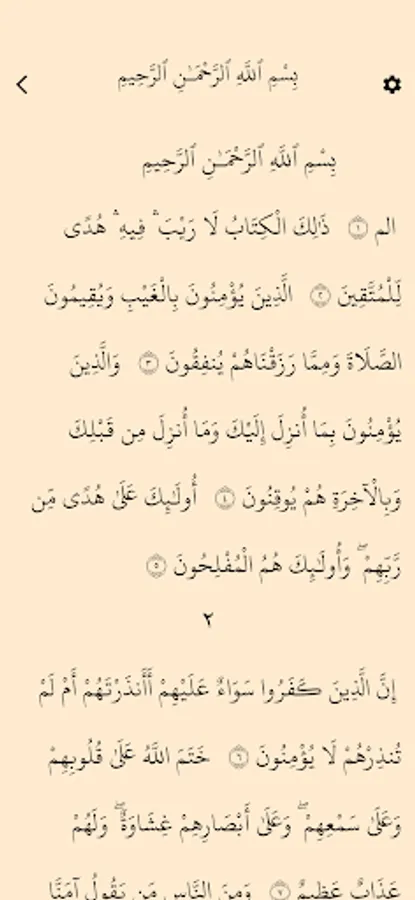 بِسْمِ ٱللَّهِ ٱلرَّحْمَـٰنِ ٱلرَّحِيمِ
بِسْمِ ٱللَّهِ ٱلرَّحْمَـٰنِ ٱلرَّحِيمِ
الم ۝١ ذَٰلِكَ الْكِتَابُ لَا رَيْبَ ۛ فِيهِ ۛ هُدًى
لِّلْمُتَّقِينَ ۝٢ الَّذِينَ يُؤْمِنُونَ بِالْغَيْبِ وَيُقِيمُونَ
الصَّلَاةَ وَمِمَّا رَزَقْنَاهُمْ يُنفِقُونَ ۝٣ وَالَّذِينَ
يُؤْمِنُونَ بِمَا أُنزِلَ إِلَيْكَ وَمَا أُنزِلَ مِن قَبْلِكَ
وَبِالْآخِرَةِ هُمْ يُوقِنُونَ ۝٤ أُولَـٰئِكَ عَلَىٰ هُدًى مِّن
رَّبِّهِمْ ۖ وَأُولَـٰئِكَ هُمُ الْمُفْلِحُونَ ۝٥
٢
إِنَّ الَّذِينَ كَفَرُوا سَوَاءٌ عَلَيْهِمْ أَأَنذَرْتَهُمْ أَمْ لَمْ
تُنذِرْهُمْ لَا يُؤْمِنُونَ ۝٦ خَتَمَ اللَّهُ عَلَىٰ قُلُوبِهِمْ
وَعَلَىٰ سَمْعِهِمْ ۖ وَعَلَىٰ أَبْصَارِهِمْ غِشَاوَةٌ ۖ وَلَهُمْ
عَذَابٌ عَظِيمٌ ۝٧ وَمِنَ النَّاسِ مَن يَقُولُ آمَنَّا